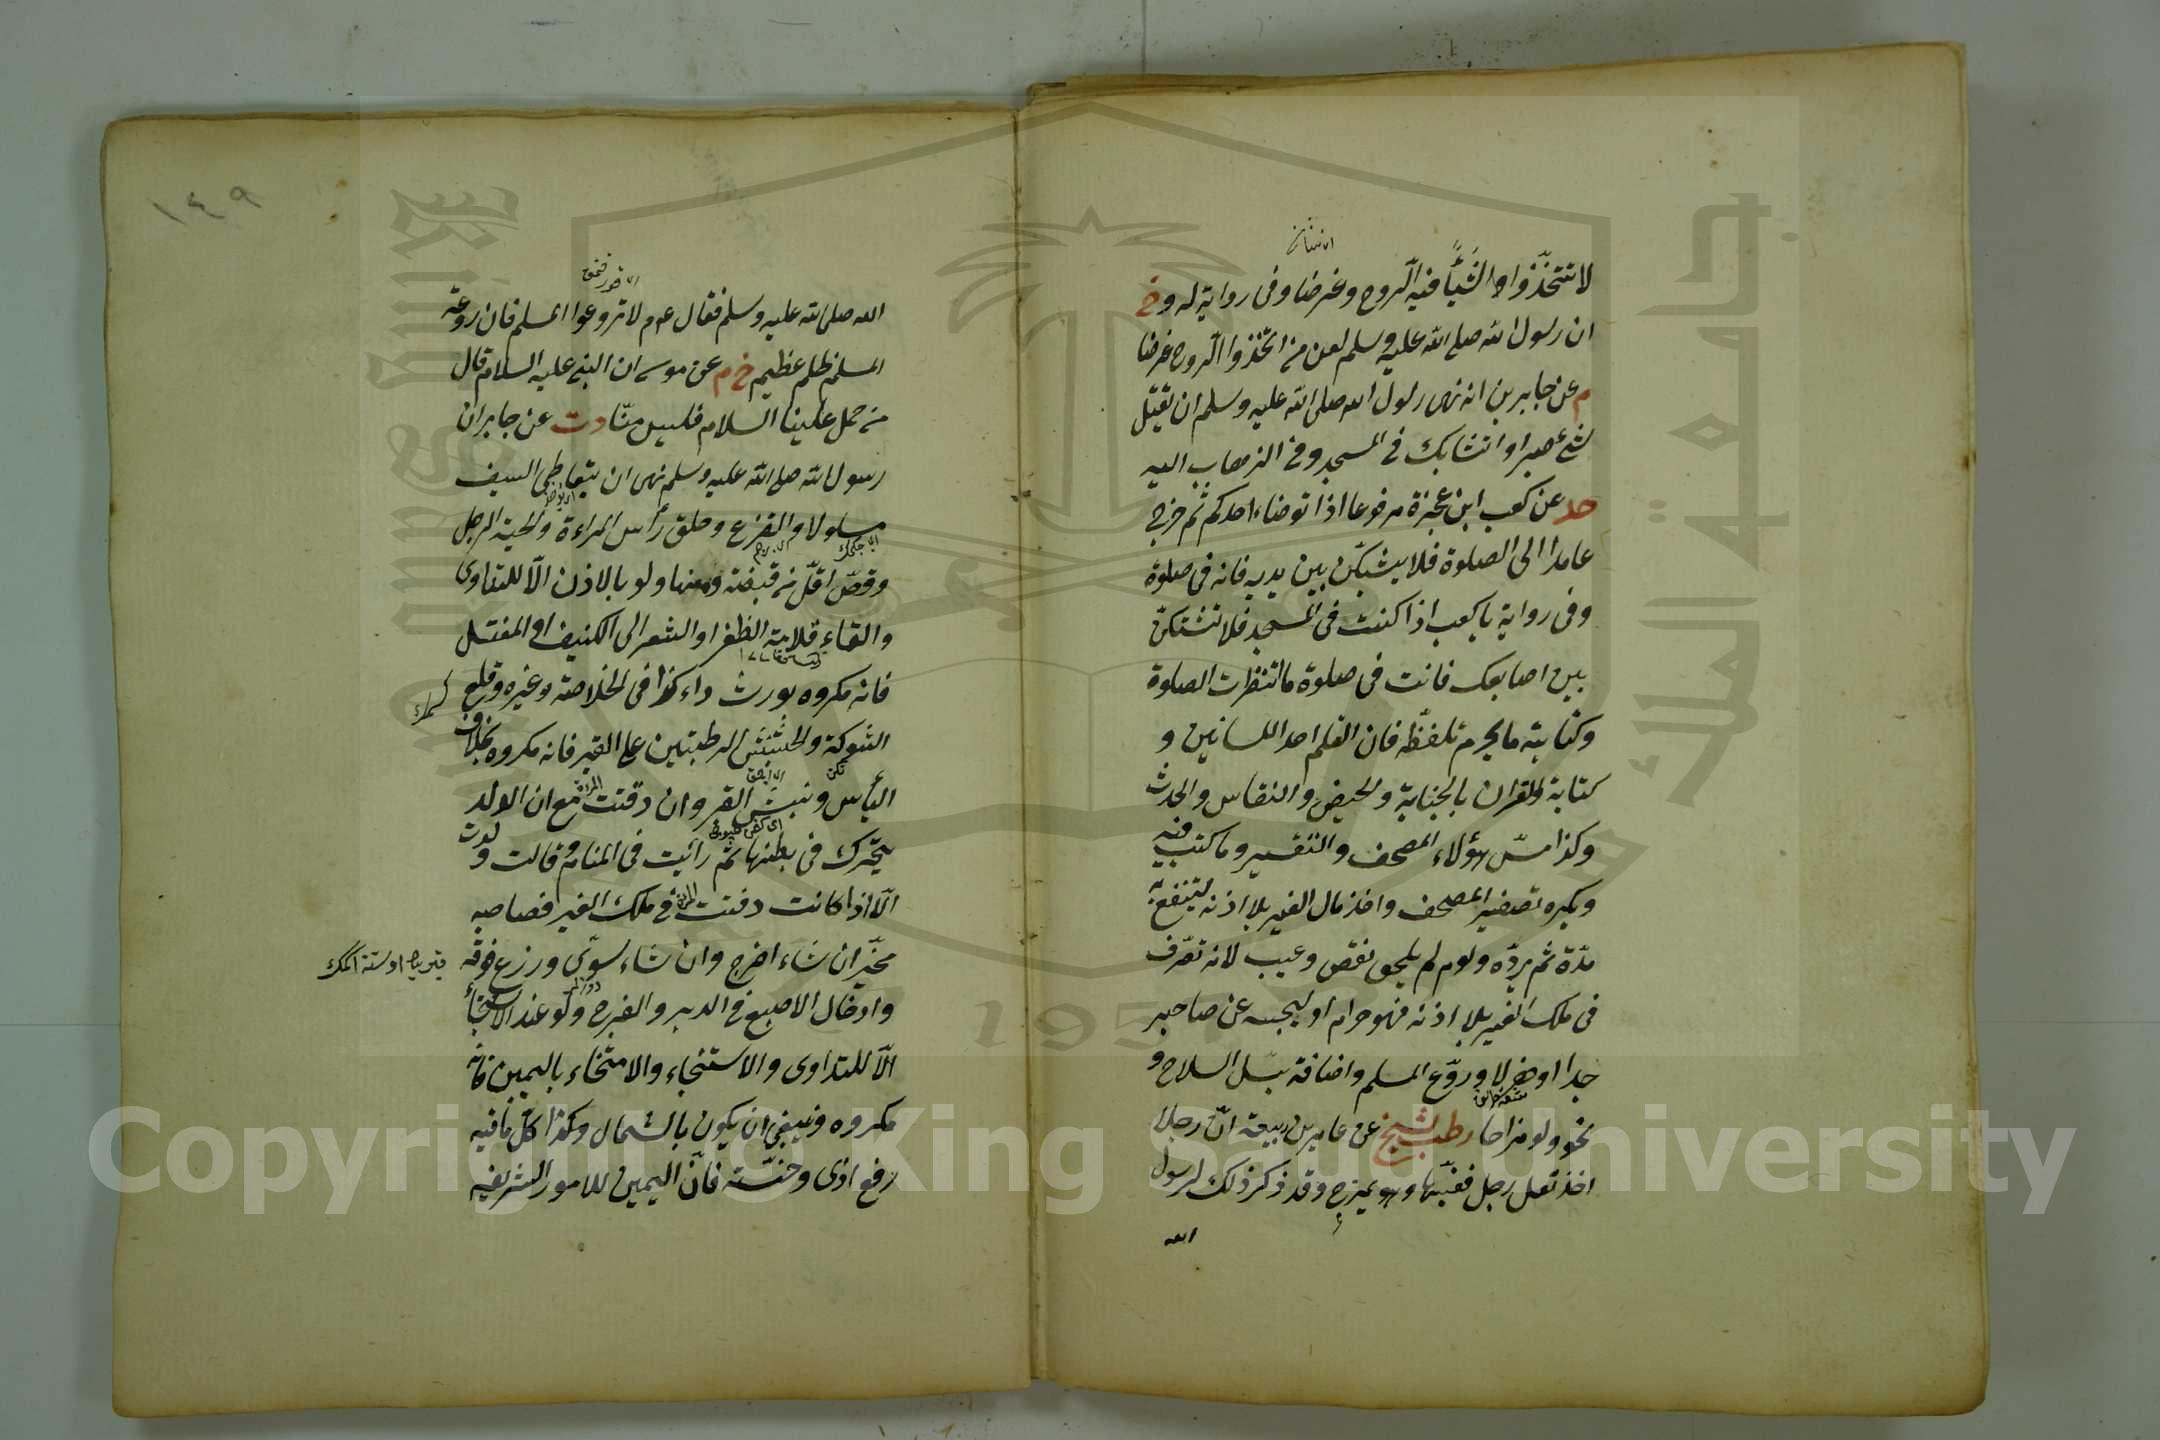 لا تتخذوا شيئا فيه الروح وغرضا وفى رواية له و خ
ان رسول الله صلى الله عليه وسلم لعن من اتخذوا الروح غرضا
م عن جابر بن انه نهى رسول الله صلى الله عليه وسلم ان تقتل
شئ صبرا و اتشابك فى المسجد وفى الذهاب اليه
حد عن كعب ابن عجزة مرفوعا اذا توضاء احدكم ثم خرج
عامدا الى الصلوة فلا يشبكن بين يديه فانه فى صلوة
وفى رواية يا كعب اذا كنت فى المسجد فلا تشتكن
بين اصابعك فانت فى صلوة ما انتظرت الصلوة
وكتابة ما يحرم تلفظه فان القلم احد اللسانين و
كتابة القران بالجنابة والحيض والنفاس والحدث
وكذا مس هؤلاء المصحف والتفسير وما كتب فيه
ويكره تصغير المصحف واخذ مال الغير بلا اذنه لينتفع به
مدة ثم يرده ولو لم يلحق نقص وعيب لانه تصرف
فى ملك الغير بلا اذنه فهو حرام او ليحبسه عن صاحبه
جدا او هزلا وروع المسلم واخافته بسل السلاح و
نحو ولو مزاحا رطب لشيخ عن عامر بن ربيعة ان رجلا
اخذ نعل رجل فغيبها وهو يمزح وقد ذكر ذلك لرسول
الله
١٤٩
الله صلى الله عليه وسلم فقال عم لا تروعوا المسلم فان روعة
المسلم ظلم عظيم خ م عن موسى ان النبى عليه السلام قال
من حمل علينا السلاح فليس منا دت عن جابر ان
رسول الله صلى الله عليه وسلم نهى ان يتعاطى السيف
مسلولا والقزع وحلق رأس المراءة ولحية الرجل
وقص اقل من قبضة منها ولو بالاذن الا للتداوى
والقاء قلامة الظفر او الشعر الى الكنيف او المغتسل
فانه مكروه يورث داء كذا فى الخلاصة وغيره وقلع
الشوكة والحشيش الرطبتين على القبر فانه مكروه بخلاف
اليأس ونبش القبر وان دفنت مع ان الولد
يتحرك فى بطنها ثم رأيت فى المنام وقالت ولدت
الا اذا كانت دفنت فى ملك الغير فصاحبه
مخير ان شاء اخرج وان شاء سوى وزرع فوقه
وادخال الاصبع فى الدبر والفرج ولو عند الاستنجاء
الا للتداوى والاستنجاء والامتخاء باليمين فانه
مكروه وينبغى ان يكون بالشمال وكذا كل ما فيه
رفع اذى وخسة فان اليمين للامور الشريفة
Copyright © King Saud University
جامعة الملك سعود
King Saud University
1957